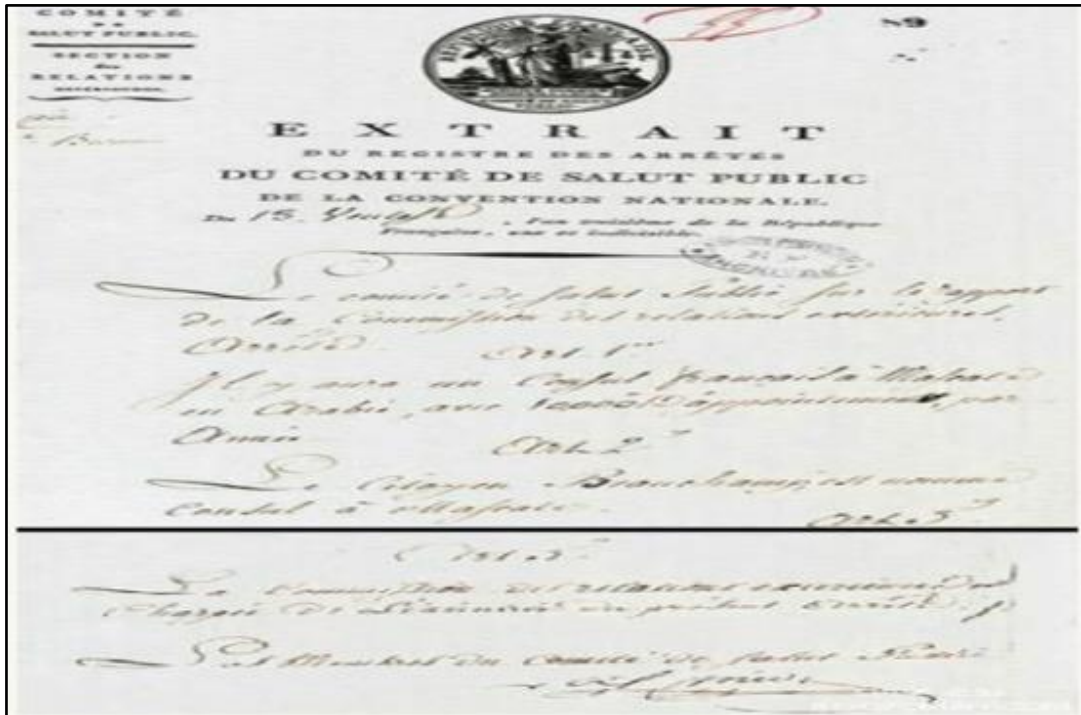 COMITÉ
DE
SALUT PUBLIC.
SECTION
des
RELATIONS
EXTÉRIEURES.
89
RÉPUBLIQUE FRANÇAISE
EXTRAIT
DU REGISTRE DES ARRÊTÉS
DU COMITÉ DE SALUT PUBLIC
DE LA CONVENTION NATIONALE.
Du 15. , l'an troisième de la République
Française, une et indivisible.
Le comité de Salut Public sur le rapport
de la Commission des relations extérieures,
Arrête
Art. 1er
Il y aura un Consul français à Mascate
en Arabie, avec d'appointements par
Année
Art. 2
Le Citoyen Beauchamp est nommé
Consul à Mascate.
Art. 3
Art. 3
La Commission des relations extérieures
chargée de du présent arrêté.
Les Membres du Comité de Salut Public